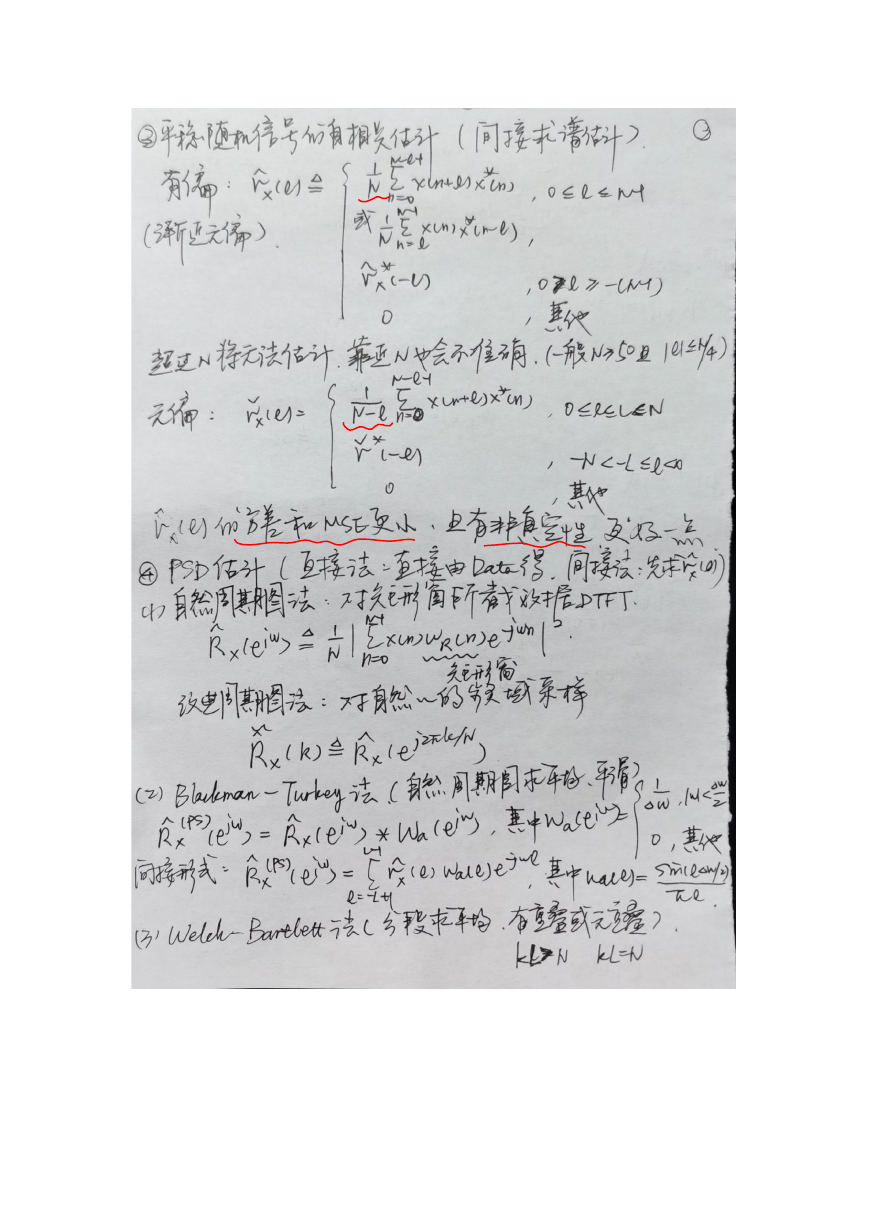 ③平稳随机信号的自相关估计（间接求谱估计）. ③
有偏: r̂ₓ(l) ≜ { 1/N ∑_{n=0}^{N-l-1} x(n+l)x*(n) , 0≤l≤N-1
(渐近无偏). 或 1/N ∑_{n=l}^{N-1} x(n)x*(n-l) ,
r̂ₓ*(-l) , 0>l≥-(N-1)
0 , 其他
超过N将无法估计. 靠近N也会不准确. (一般N≥50且 |l|≤N/4)
无偏: řₓ(l) = { 1/(N-l) ∑_{n=0}^{N-l-1} x(n+l)x*(n) , 0≤l≤L≤N
ř*(-l) , -N<-L≤l<0
0 , 其他
r̂ₓ(l)的方差和MSE更小. 且有非负定性 更好一点
④ PSD估计 (直接法:直接由Data得. 间接法:先求r̂ₓ(l))
(1) 自然周期图法: 对矩形窗所截数据DTFT.
R̂ₓ(e^{jω}) ≜ 1/N |∑_{n=0}^{N-1} x(n)w_R(n)e^{-jωn}|².
矩形窗
改进周期图法: 对自然~的频域采样
R̃ₓ(k) ≜ R̂ₓ(e^{j2πk/N})
(2) Blackman-Turkey法 (自然周期图求平均、平滑)
R̂ₓ^{(PS)}(e^{jω}) = R̂ₓ(e^{jω}) * Wa(e^{jω}), 其中Wa(e^{jω}) = { 1/Δω , |ω|<Δω/2
0 , 其他
间接形式: R̂ₓ^{(PS)}(e^{jω}) = ∑_{l=-L+1}^{L-1} r̂ₓ(l) wa(l) e^{-jωl}, 其中wa(l) = sin(lΔω/2)/πl .
(3) Welch-Bartlett法 (分段求平均. 有重叠或无重叠).
kL>N kL=N